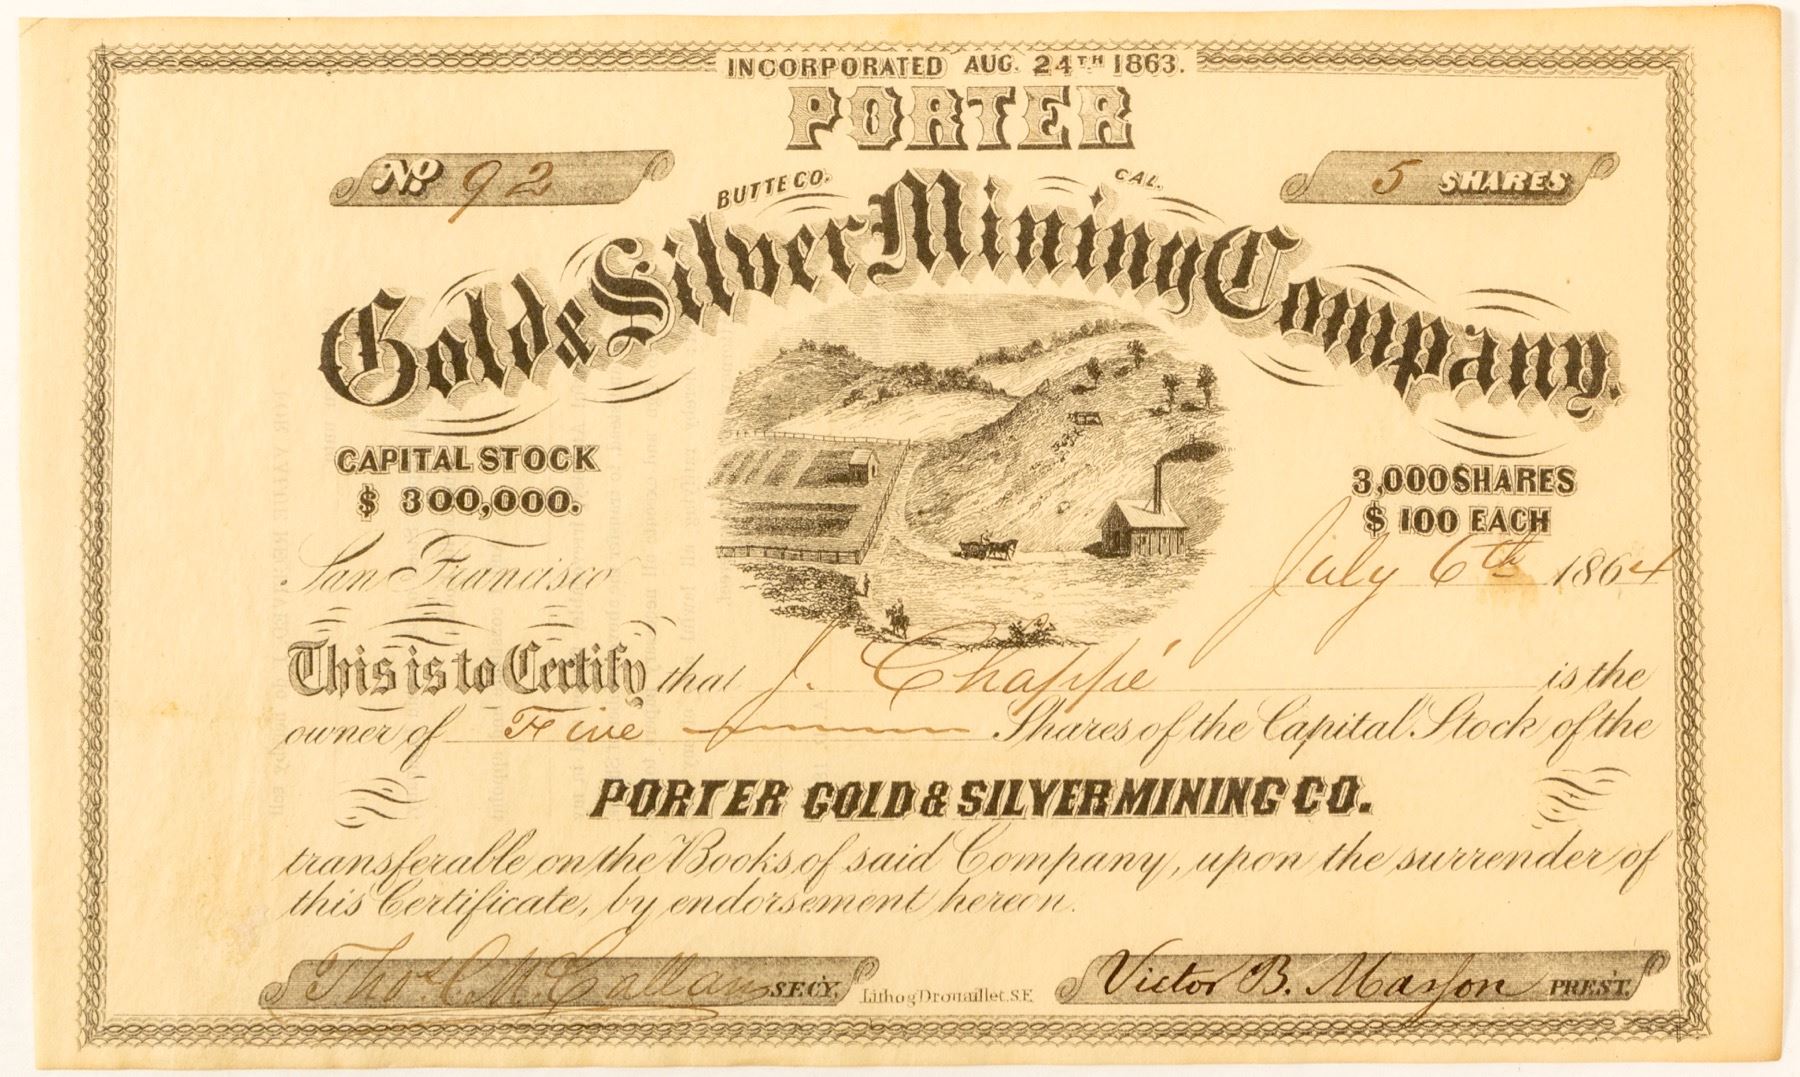 INCORPORATED AUG. 24TH 1863.
PORTER
No. 92
BUTTE CO. CAL.
5 SHARES
Gold & Silver Mining Company.
CAPITAL STOCK
$ 300,000.
3,000 SHARES
$ 100 EACH
San Francisco July 6th 1864
This is to Certify that J. Chappé is the
owner of Five Shares of the Capital Stock of the
PORTER GOLD & SILVER MINING CO.
transferable on the Books of said Company, upon the surrender of
this Certificate, by endorsement hereon.
Thos. C. McCallan SECY.
Lithog Drouaillet. S.F.
Victor B. Masson PRES'T.